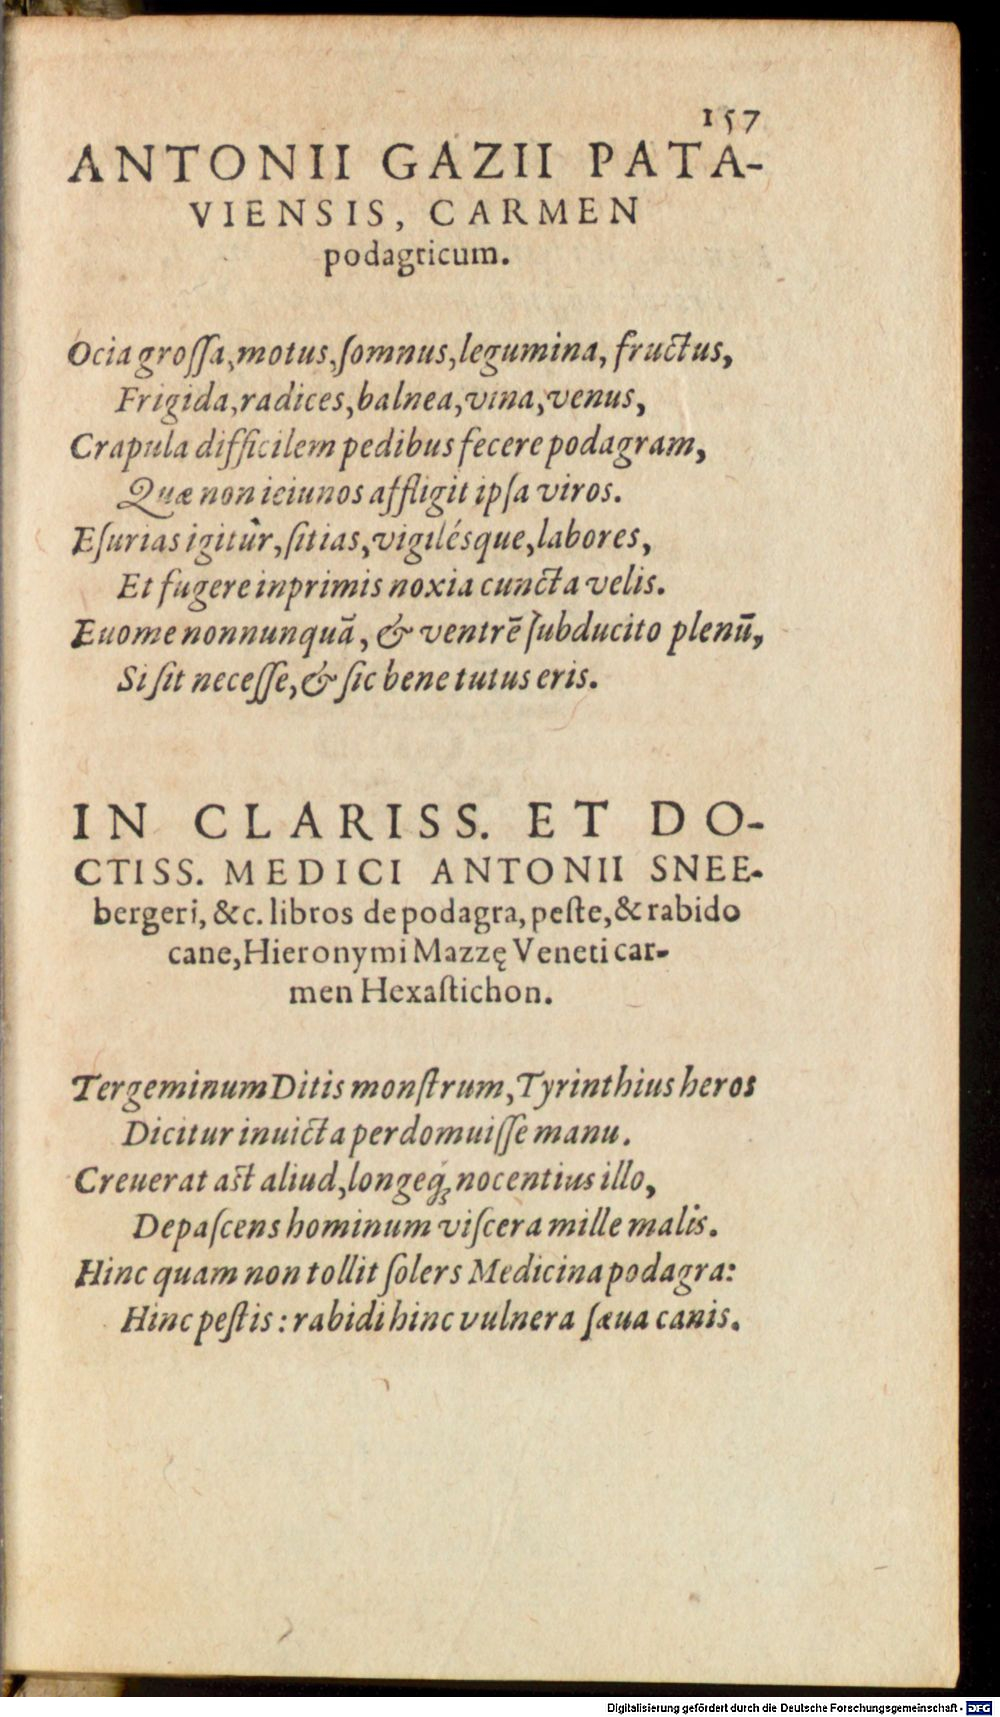 157
ANTONII GAZII PATA-
VIENSIS, CARMEN
podagricum.
Ocia grossa, motus, somnus, legumina, fructus,
Frigida, radices, balnea, vina, venus,
Crapula difficilem pedibus fecere podagram,
Quæ non ieiunos affligit ipsa viros.
Esurias igitùr, sitias, vigilésque, labores,
Et fugere inprimis noxia cuncta velis.
Euome nonnunquā, & ventrē subducito plenū,
Si sit necesse, & sic bene tutus eris.
IN CLARISS. ET DO-
CTISS. MEDICI ANTONII SNEE-
bergeri, &c. libros de podagra, peste, & rabido
cane, Hieronymi Mazzę Veneti car-
men Hexastichon.
Tergeminum Ditis monstrum, Tyrinthius heros
Dicitur inuicta perdomuisse manu.
Creuerat ast aliud, longeq́; nocentius illo,
Depascens hominum viscera mille malis.
Hinc quam non tollit solers Medicina podagra:
Hinc pestis: rabidi hinc vulnera sæua canis.
Digitalisierung gefördert durch die Deutsche Forschungsgemeinschaft - DFG